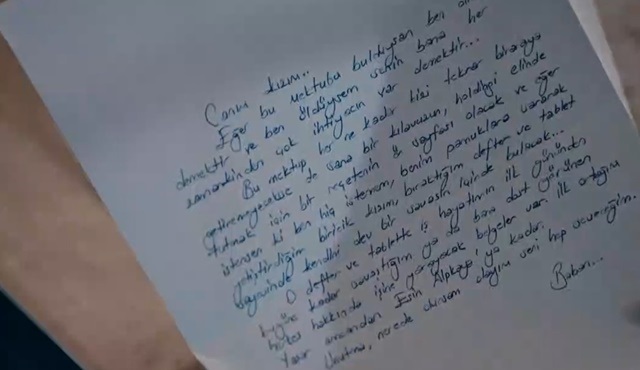 Canım kızım...
Eğer bu mektubu bulduysan ben
demektir ve ben öldüysem senin bana her
zamankinden çok ihtiyacın var demektir...
Bu mektup her ne kadar bizi tekrar biraraya
getiremeyecekse de sana bir kılavuzun, holdingi elinde
tutmak için bir reçetenin sayfası olacak ve eğer
istersen ki ben hiç isterem, benim pamuklara sararak
geliştirdiğim biricik kızım, bıraktığım defter ve tablet
sayesinde kendini dev bir savaşın içinde bulacak...
O defter ve tablette iş hayatımın ilk gününden
bugüne kadar savaştığım ya da bana dost görünen
herkes hakkında işine yarayacak bilgiler var. İlk ortağım
Yaşar amcandan Esin Alpkaya'ya kadar.
Unutma, nerede olursam olayım seni hep seveceğim.
Baban...